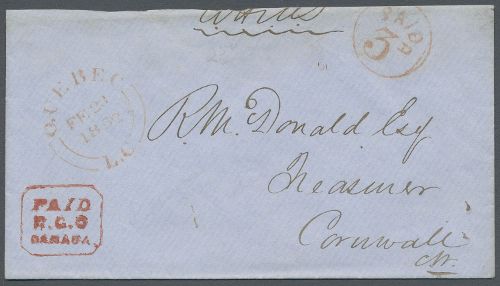 PAID
3
QUEBEC
FE 23
L.C
R McDonald Esq
Treasurer
Cornwall
PAID
R.G.O
CANADA